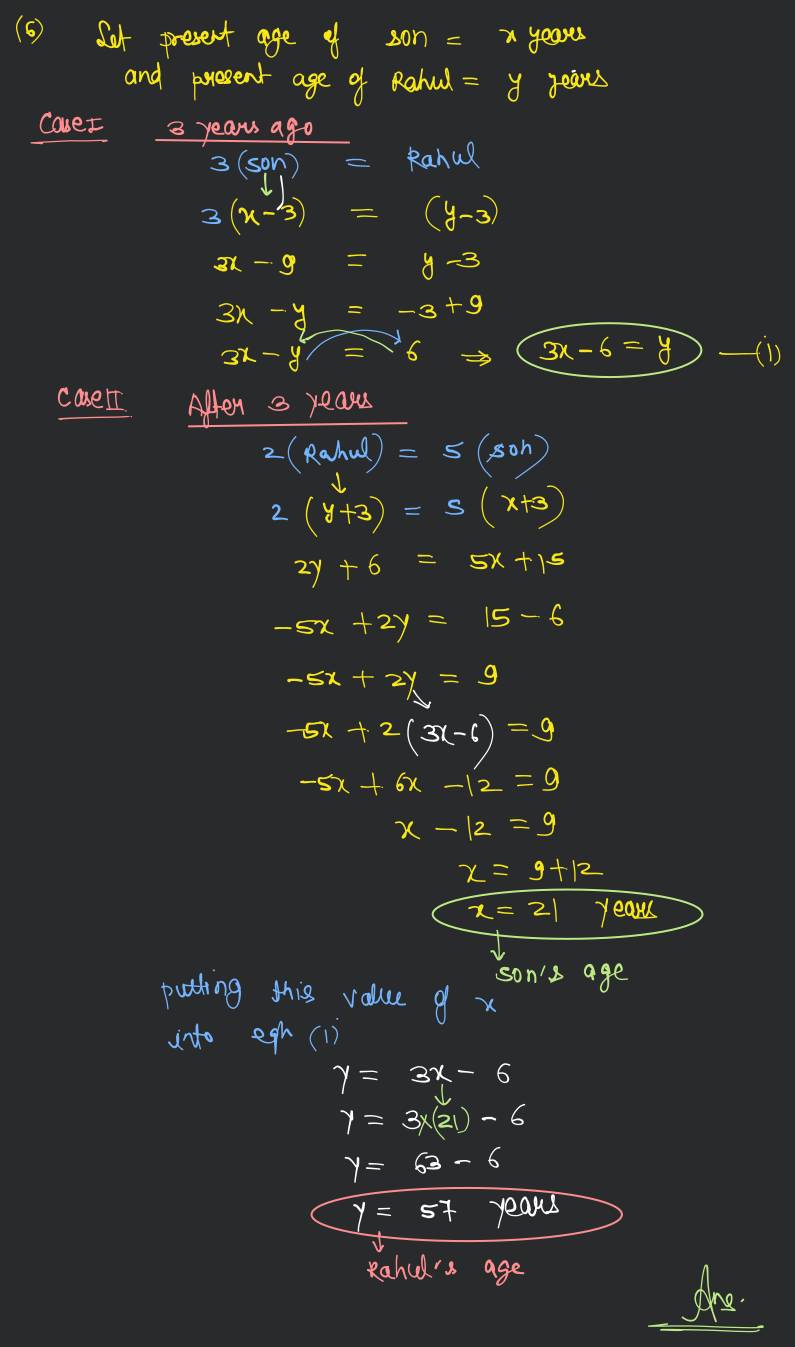 (6) Let present age of son = x years
and present age of Rahul = y years
Case I 3 years ago
3 (son) = Rahul
3 (x-3) = (y-3)
3x - 9 = y - 3
3x - y = -3 + 9
3x - y = 6 ⇒ 3x - 6 = y —(i)
Case II After 3 years
2 (Rahul) = 5 (son)
2 (y+3) = 5 (x+3)
2y + 6 = 5x + 15
-5x + 2y = 15 - 6
-5x + 2y = 9
-5x + 2 (3x-6) = 9
-5x + 6x - 12 = 9
x - 12 = 9
x = 9 + 12
x = 21 years
son's age
putting this value of x
into eqn (1)
y = 3x - 6
y = 3×(21) - 6
y = 63 - 6
y = 57 years
Rahul's age
Ans.